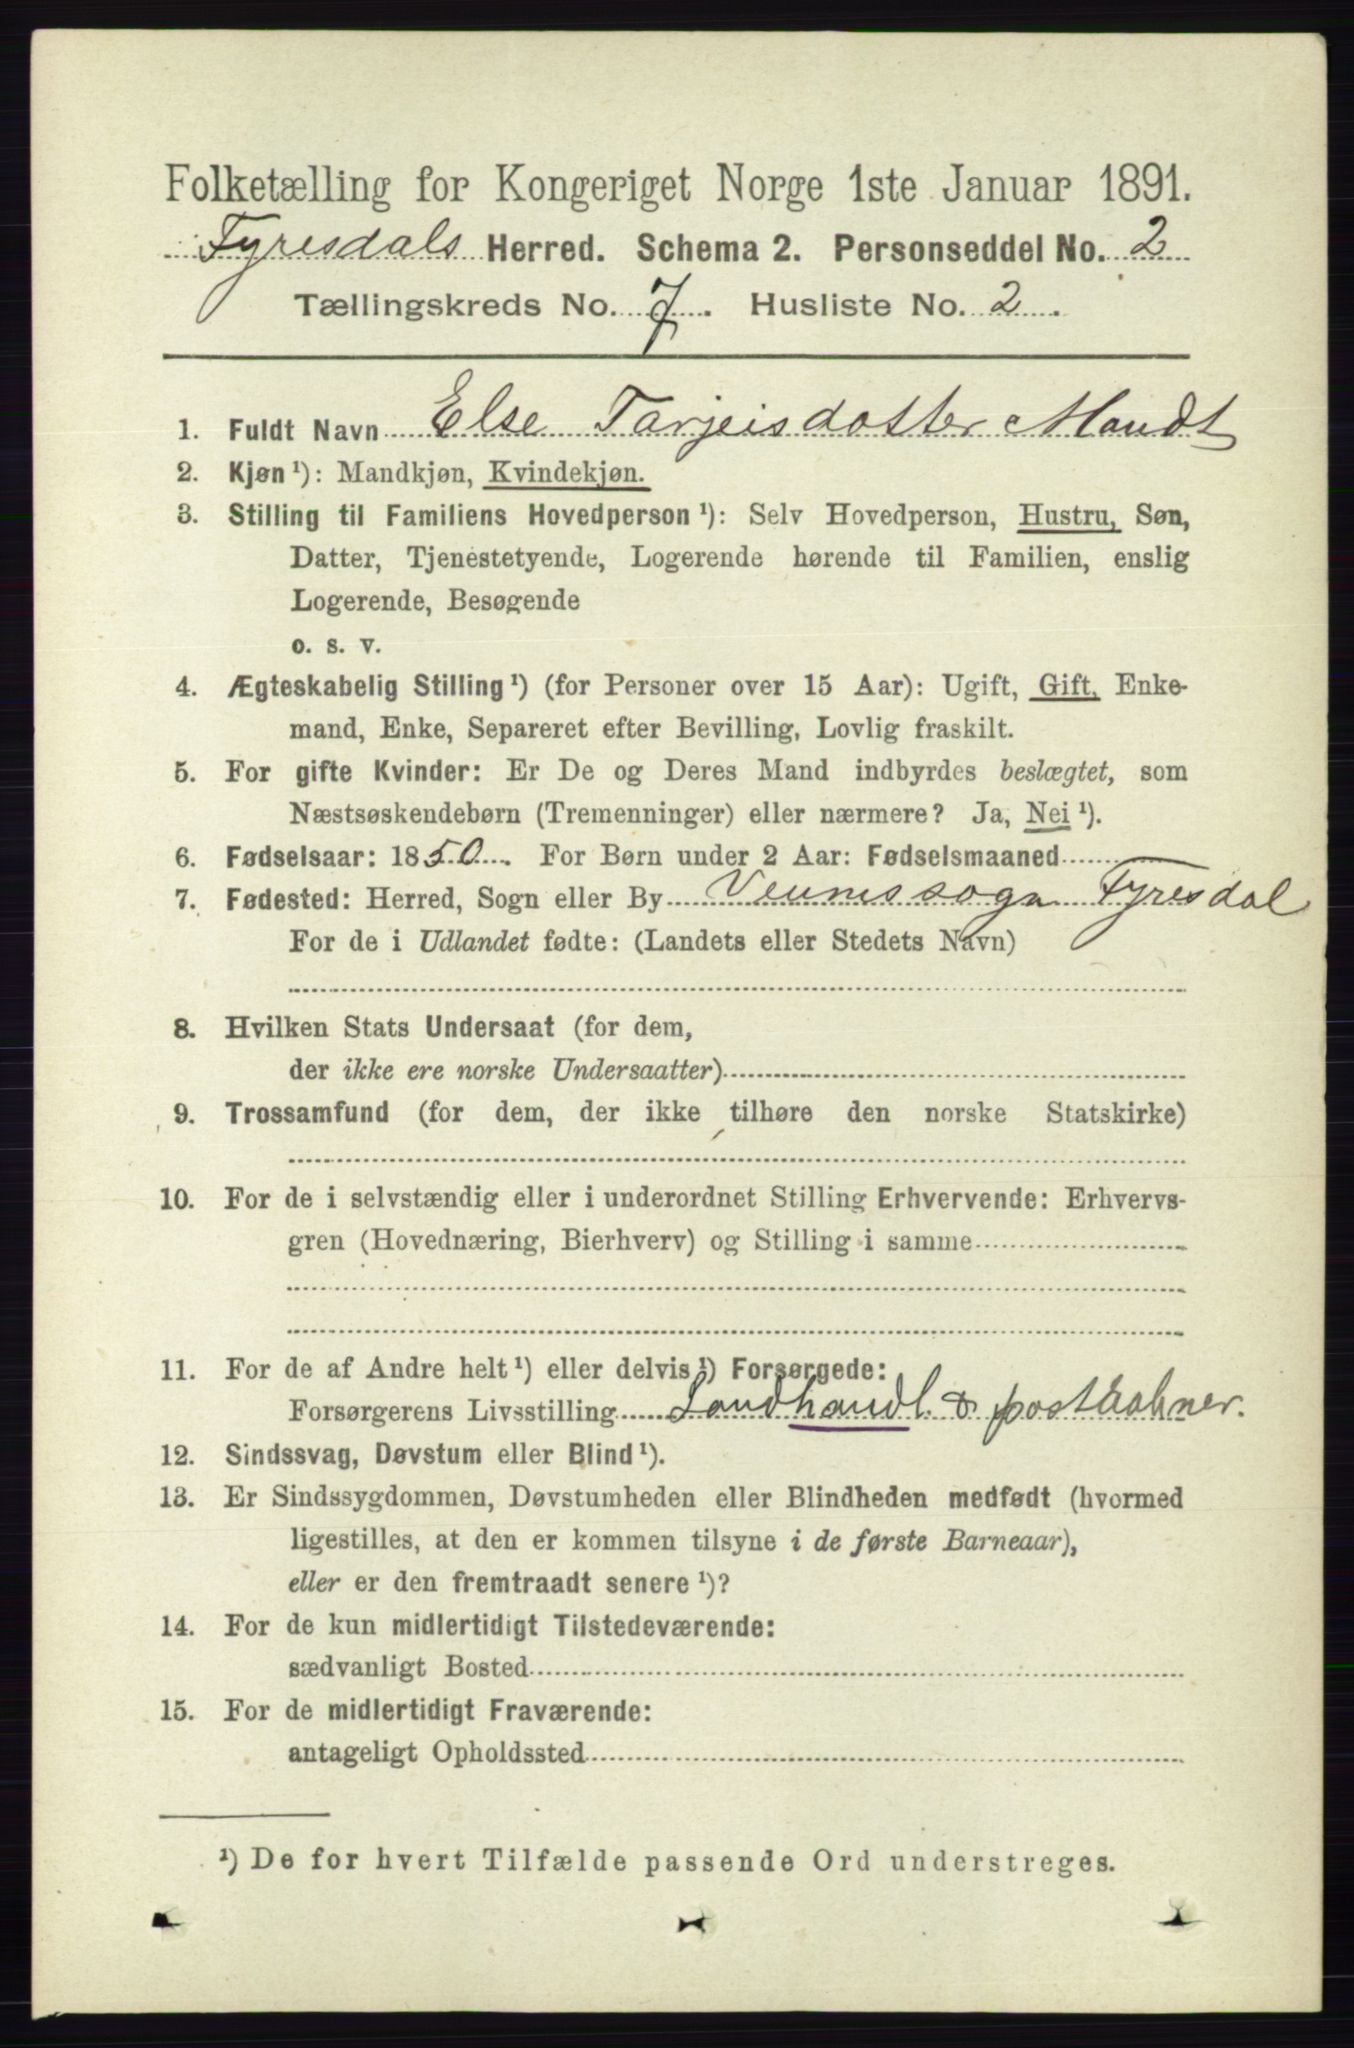 Folketælling for Kongeriget Norge 1ste Januar 1891.
Fyresdals Herred. Schema 2. Personseddel No. 2
Tællingskreds No. 7. Husliste No. 2.
1. Fuldt Navn Else Tarjeisdotter Mandt
2. Kjøn ¹): Mandkjøn, Kvindekjøn.
3. Stilling til Familiens Hovedperson ¹): Selv Hovedperson, Hustru, Søn,
Datter, Tjenestetyende, Logerende hørende til Familien, enslig
Logerende, Besøgende
o. s. v.
4. Ægteskabelig Stilling ¹) (for Personer over 15 Aar): Ugift, Gift, Enke-
mand, Enke, Separeret efter Bevilling, Lovlig fraskilt.
5. For gifte Kvinder: Er De og Deres Mand indbyrdes beslægtet, som
Næstsøskendebørn (Tremenninger) eller nærmere? Ja, Nei ¹).
6. Fødselsaar: 1850. For Børn under 2 Aar: Fødselsmaaned
7. Fødested: Herred, Sogn eller By Veumssogn Fyresdal
For de i Udlandet fødte: (Landets eller Stedets Navn)
8. Hvilken Stats Undersaat (for dem,
der ikke ere norske Undersaatter)
9. Trossamfund (for dem, der ikke tilhøre den norske Statskirke)
10. For de i selvstændig eller i underordnet Stilling Erhvervende: Erhvervs-
gren (Hovednæring, Bierhverv) og Stilling i samme
11. For de af Andre helt ¹) eller delvis ¹) Forsørgede:
Forsørgerens Livsstilling Landhandl. & postaabner.
12. Sindssvag, Døvstum eller Blind ¹).
13. Er Sindssygdommen, Døvstumheden eller Blindheden medfødt (hvormed
ligestilles, at den er kommen tilsyne i de første Barneaar),
eller er den fremtraadt senere ¹)?
14. For de kun midlertidigt Tilstedeværende:
sædvanligt Bosted
15. For de midlertidigt Fraværende:
antageligt Opholdssted
¹) De for hvert Tilfælde passende Ord understreges.